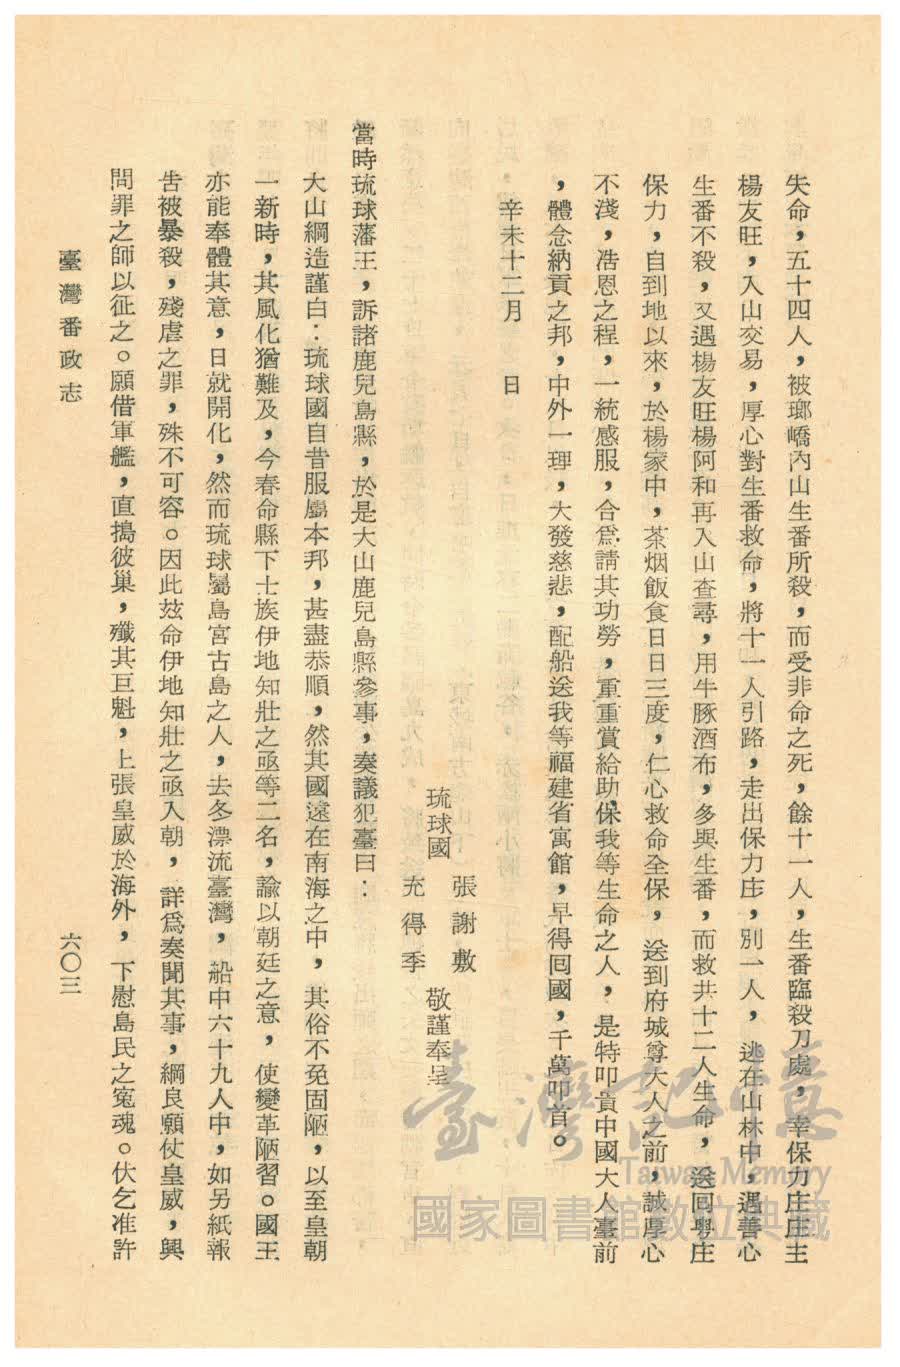 失命，五十四人，被瑯嶠內山生番所殺，而受非命之死，餘十一人，生番臨殺刀處，幸保力庄庄主
楊友旺，入山交易，厚心對生番救命，將十一人引路，走出保力庄，別一人，逃在山林中，遇善心
生番不殺，又遇楊友旺楊阿和再入山查尋，用牛豚酒布，多與生番，而救共十二人生命，送回粵庄
保力，自到地以來，於楊家中，茶烟飯食日日三度，仁心救命全保，送到府城尊大人之前，誠厚心
不淺，浩恩之程，一統感服，合爲請其功勞，重重賞給助保我等生命之人，是特叩貴中國大人臺前
，體念納貢之邦，中外一理，大發慈悲，配船送我等福建省寓館，早得囘國，千萬叩首。
辛未十二月　日
張謝敷
琉球國　敬謹奉呈
充得季
當時琉球藩王，訴諸鹿兒島縣，於是大山鹿兒島縣參事，奏議犯臺曰：
大山綱造謹白：琉球國自昔服屬本邦，甚盡恭順，然其國遠在南海之中，其俗不免固陋，以至皇朝
一新時，其風化猶難及，今春命縣下士族伊地知壯之亟等二名，諭以朝廷之意，使變革陋習。國王
亦能奉體其意，日就開化，然而琉球屬島宮古島之人，去冬漂流臺灣，船中六十九人中，如另紙報
吿被暴殺，殘虐之罪，殊不可容。因此玆命伊地知壯之亟入朝，詳爲奏聞其事，綱良願仗皇威，興
問罪之師以征之。願借軍艦，直搗彼巢，殲其巨魁，上張皇威於海外，下慰島民之寃魂。伏乞准許
臺灣番政志
六〇三
臺灣記憶
Taiwan Memory
國家圖書館數位典藏